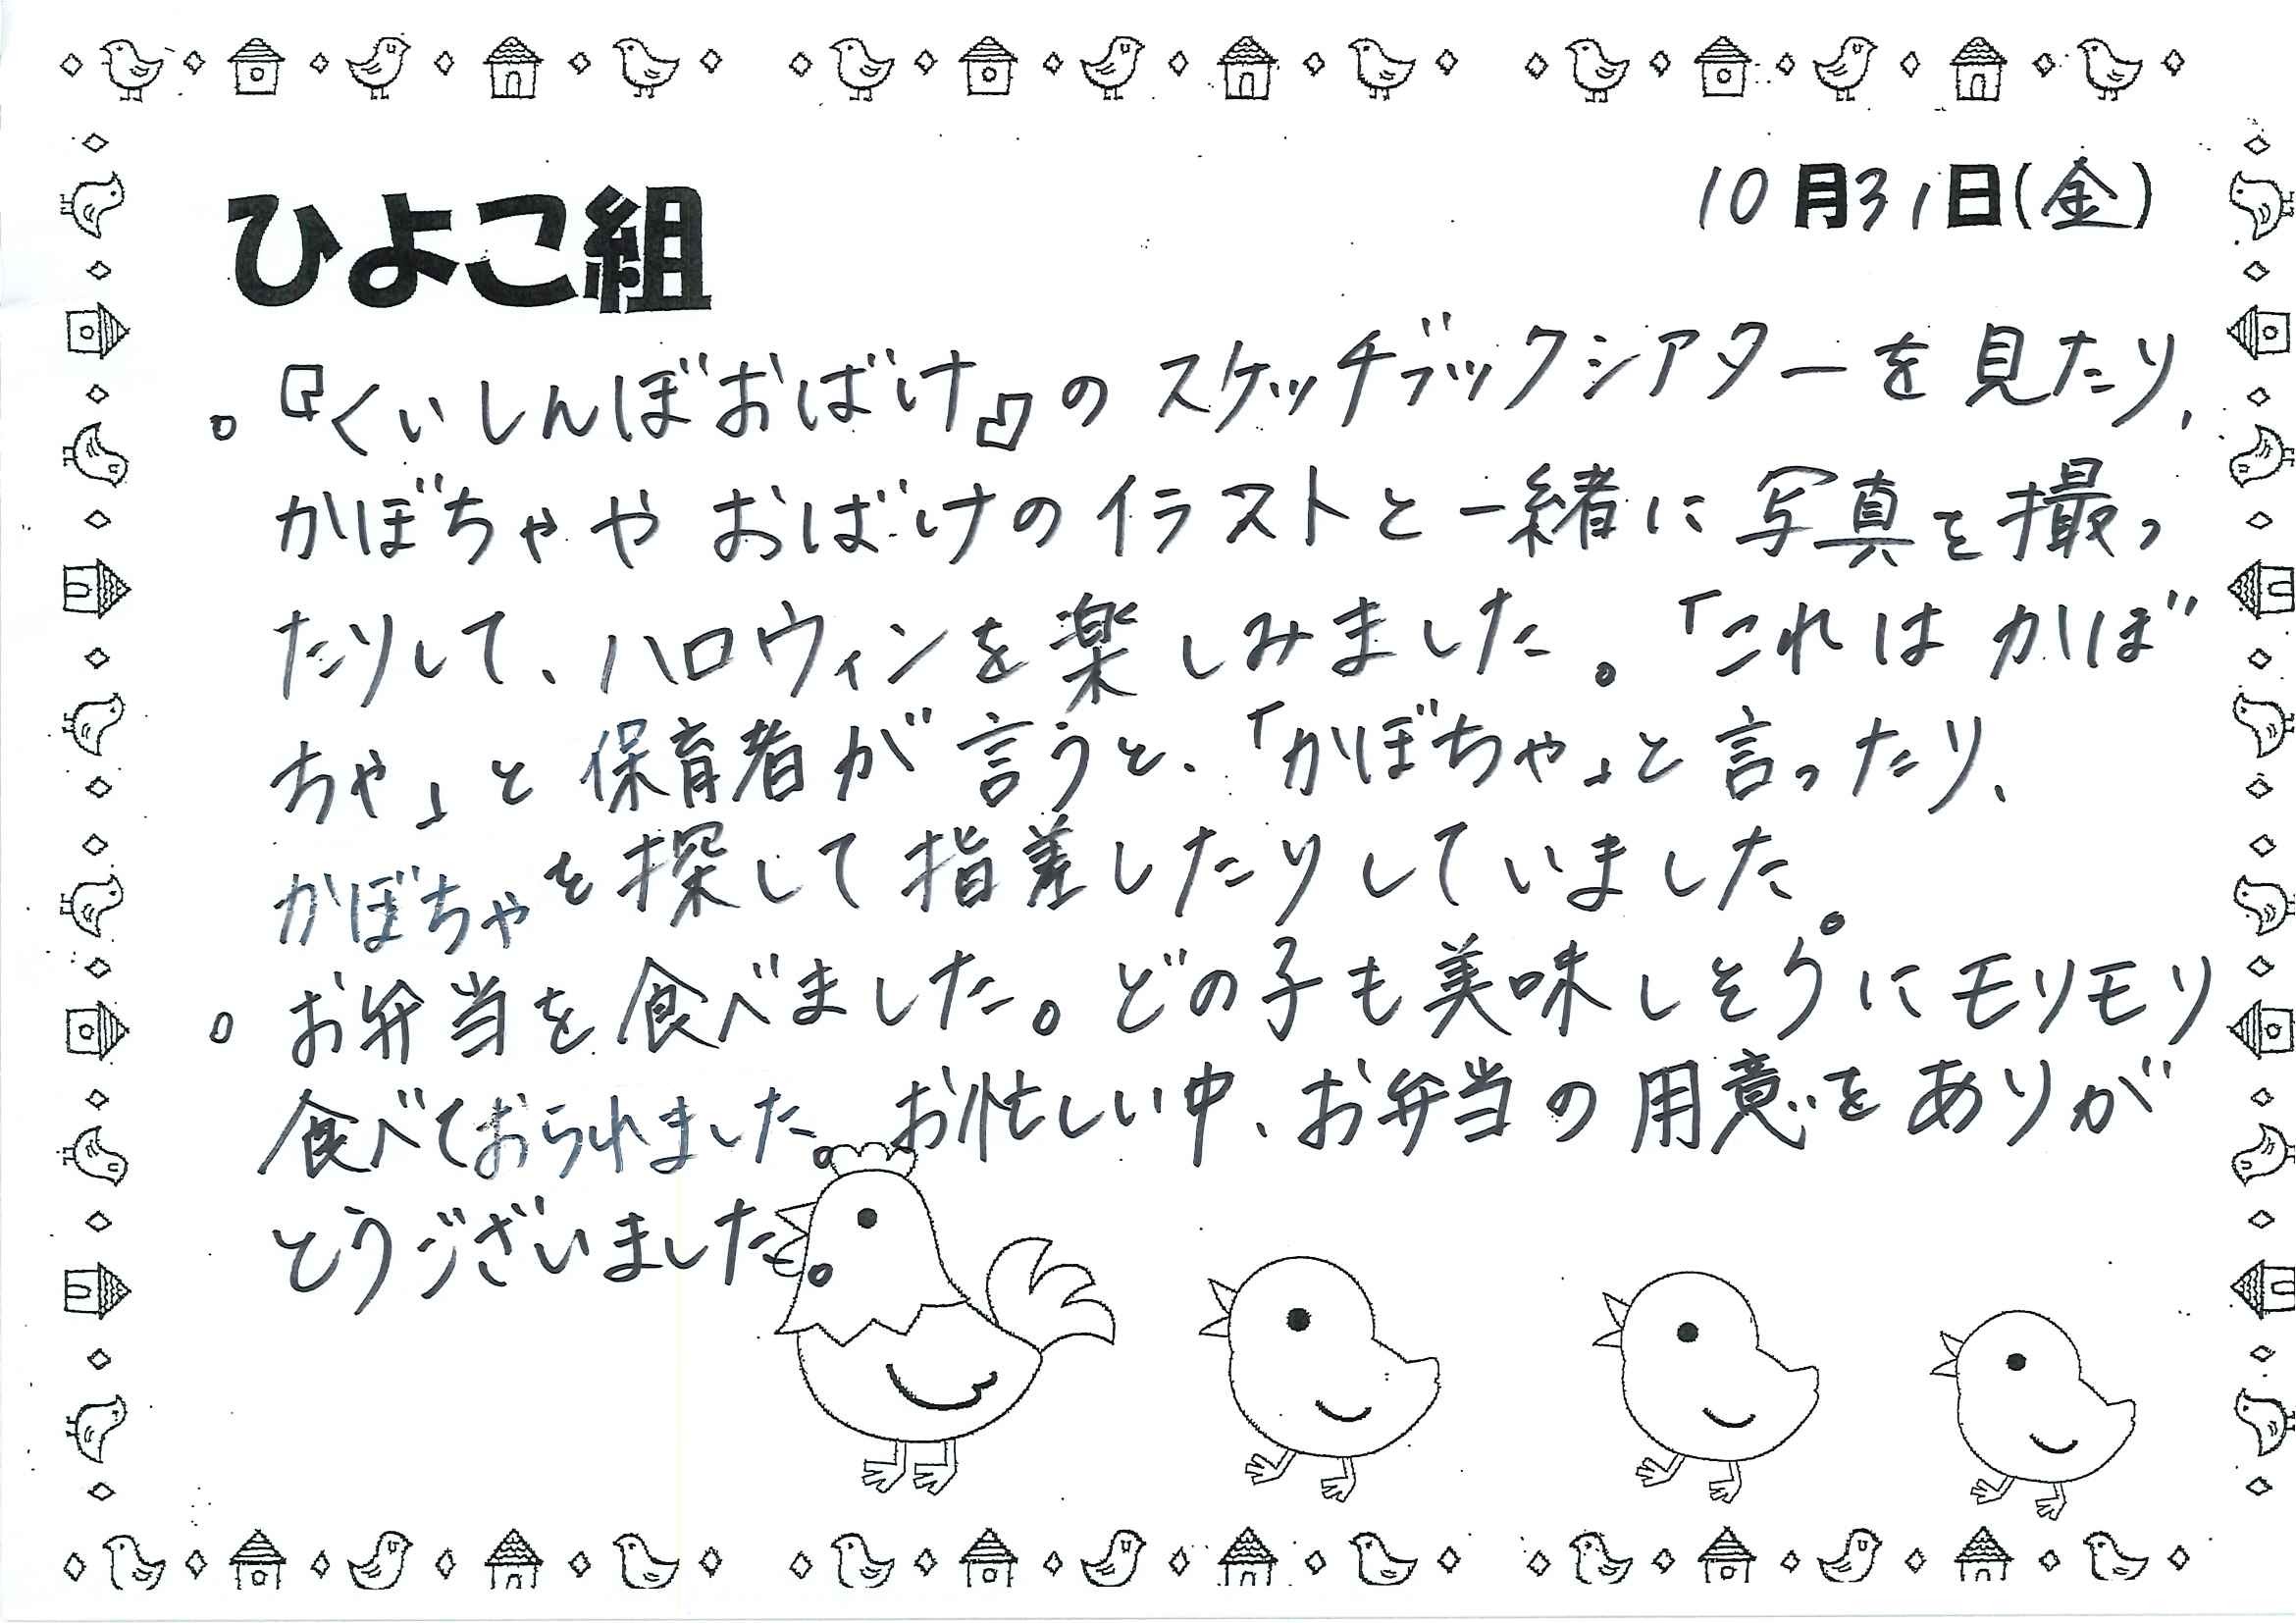 ひよこ組
10月31日(金)
。『くいしんぼおばけ』のスケッチブックシアターを見たり、
かぼちゃやおばけのイラストと一緒に写真を撮っ
たりして、ハロウィンを楽しみました。「これはかぼ
ちゃ」と保育者が言うと、「かぼちゃ」と言ったり、
かぼちゃを探して指差したりしていました。
。お弁当を食べました。どの子も美味しそうにモリモリ
食べておられました。お忙しい中、お弁当の用意をありが
とうございました。